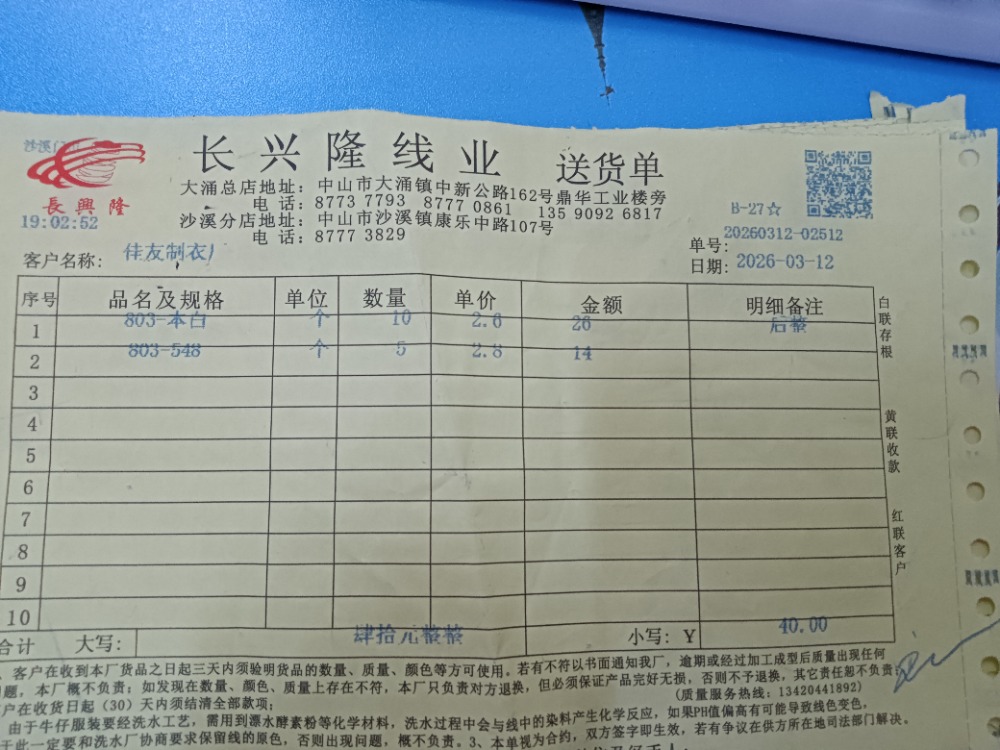 长兴隆线业 送货单
長興隆
大涌总店地址：中山市大涌镇中新公路162号鼎华工业楼旁
电话：8773 7793 8777 0861 135 9092 6817
沙溪分店地址：中山市沙溪镇康乐中路107号
电话：8777 3829
19:02:52
B-27☆
单号：20260312-02512
客户名称：佳友制衣厂
日期：2026-03-12
序号 品名及规格 单位 数量 单价 金额 明细备注
1 803-本白 个 10 2.6 26 后整
2 803-548 个 5 2.8 14
3
4
5
6
7
8
9
10
合计 大写：肆拾元整整 小写：¥ 40.00
白联存根
黄联收款
红联客户
客户在收到本厂货品之日起三天内须验明货品的数量、质量、颜色等方可使用。若有不符以书面通知我厂，逾期或经过加工成型后质量出现任何
问题，本厂概不负责；如发现在数量、颜色、质量上存在不符，本厂只负责对方退换，但必须保证产品完好无损，否则不予退换，其它责任恕不负责；
(质量服务热线：13420441892)
户在收货日起（30）天内须结清全部款项；
由于牛仔服装要经洗水工艺，需用到漂水酵素粉等化学材料，洗水过程中会与线中的染料产生化学反应，如果PH值偏高有可能导致线色变色，
于此一定要和洗水厂协商要求保留线的原色，否则出现问题，概不负责。3、本单视为合约，双方签字即生效，若有争议在供方所在地司法部门解决。